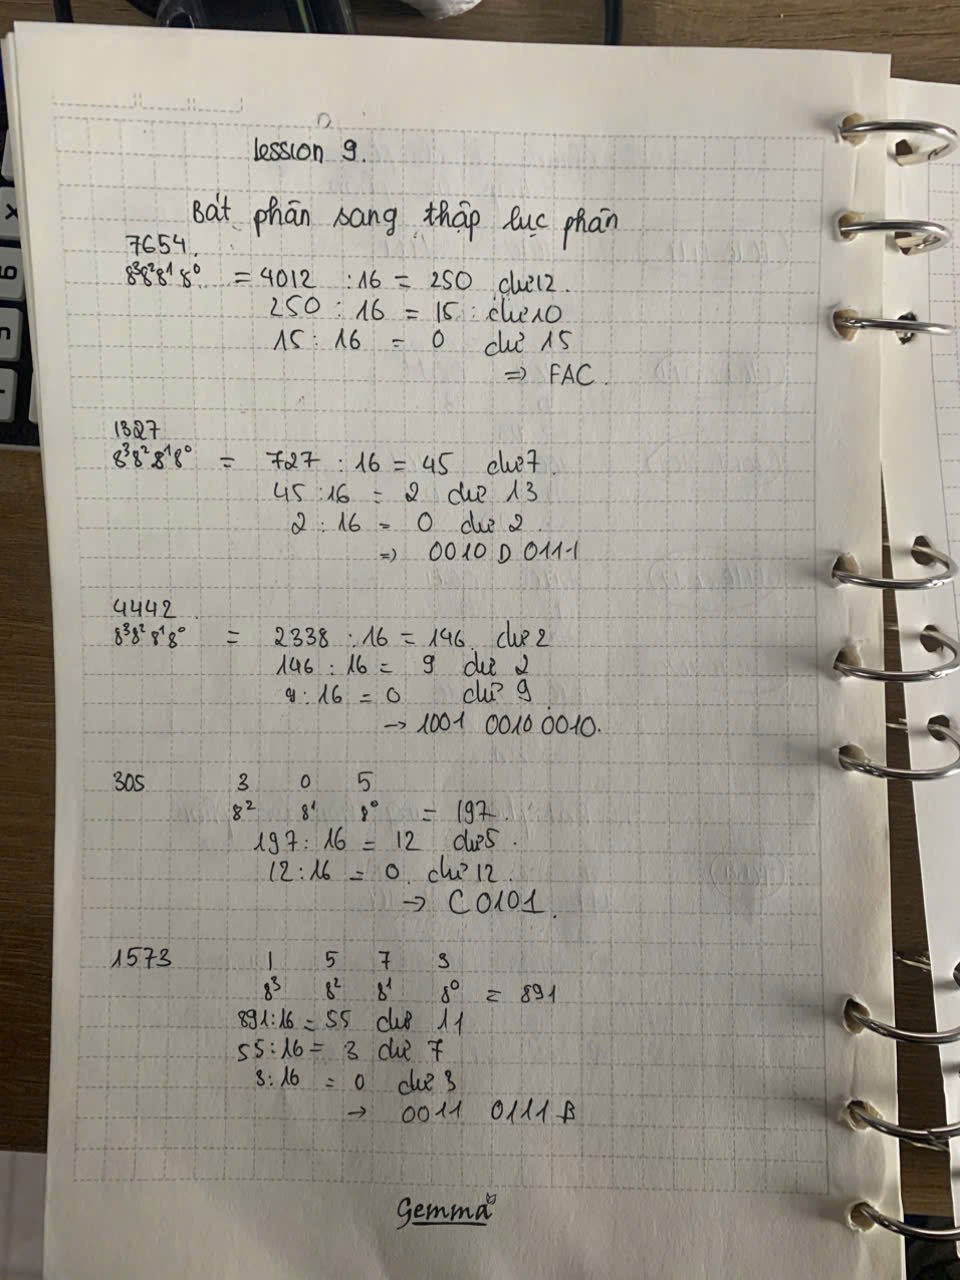 lession 9.
Bát phân sang thập lục phân
7654.
8³8²8¹8⁰ = 4012 : 16 = 250 dư 12.
250 : 16 = 15 : dư 10
15 : 16 = 0 dư 15
⇒ FAC.
1327
8³8²8¹8⁰ = 727 : 16 = 45 dư 7.
45 : 16 = 2 dư 13
2 : 16 = 0 dư 2.
⇒ 0010 D 0111
4442.
8³8²8¹8⁰ = 2338 : 16 = 146 dư 2
146 : 16 = 9 dư 2
9 : 16 = 0 dư 9
→ 1001 0010 0010.
305 3 0 5
8² 8¹ 8⁰ = 197.
197 : 16 = 12 dư 5.
12 : 16 = 0. dư 12.
→ C 0101.
1573 1 5 7 3
8³ 8² 8¹ 8⁰ = 891
891 : 16 = 55 dư 11
55 : 16 = 3 dư 7
3 : 16 = 0 dư 3
→ 0011 0111 B
Gemma